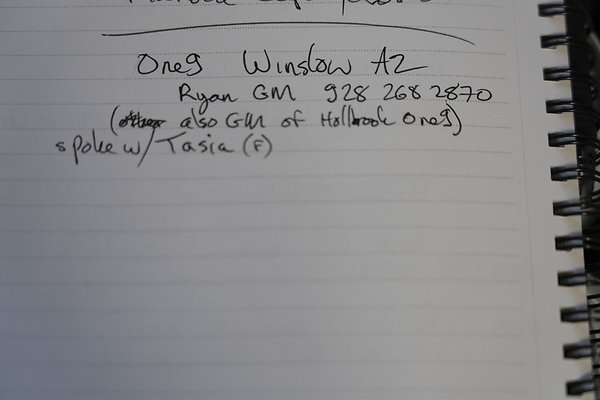 One9 Winslow AZ
Ryan GM 928 268 2870
(other also GM of Holbrook One9)
spoke w/ Tasia (F)